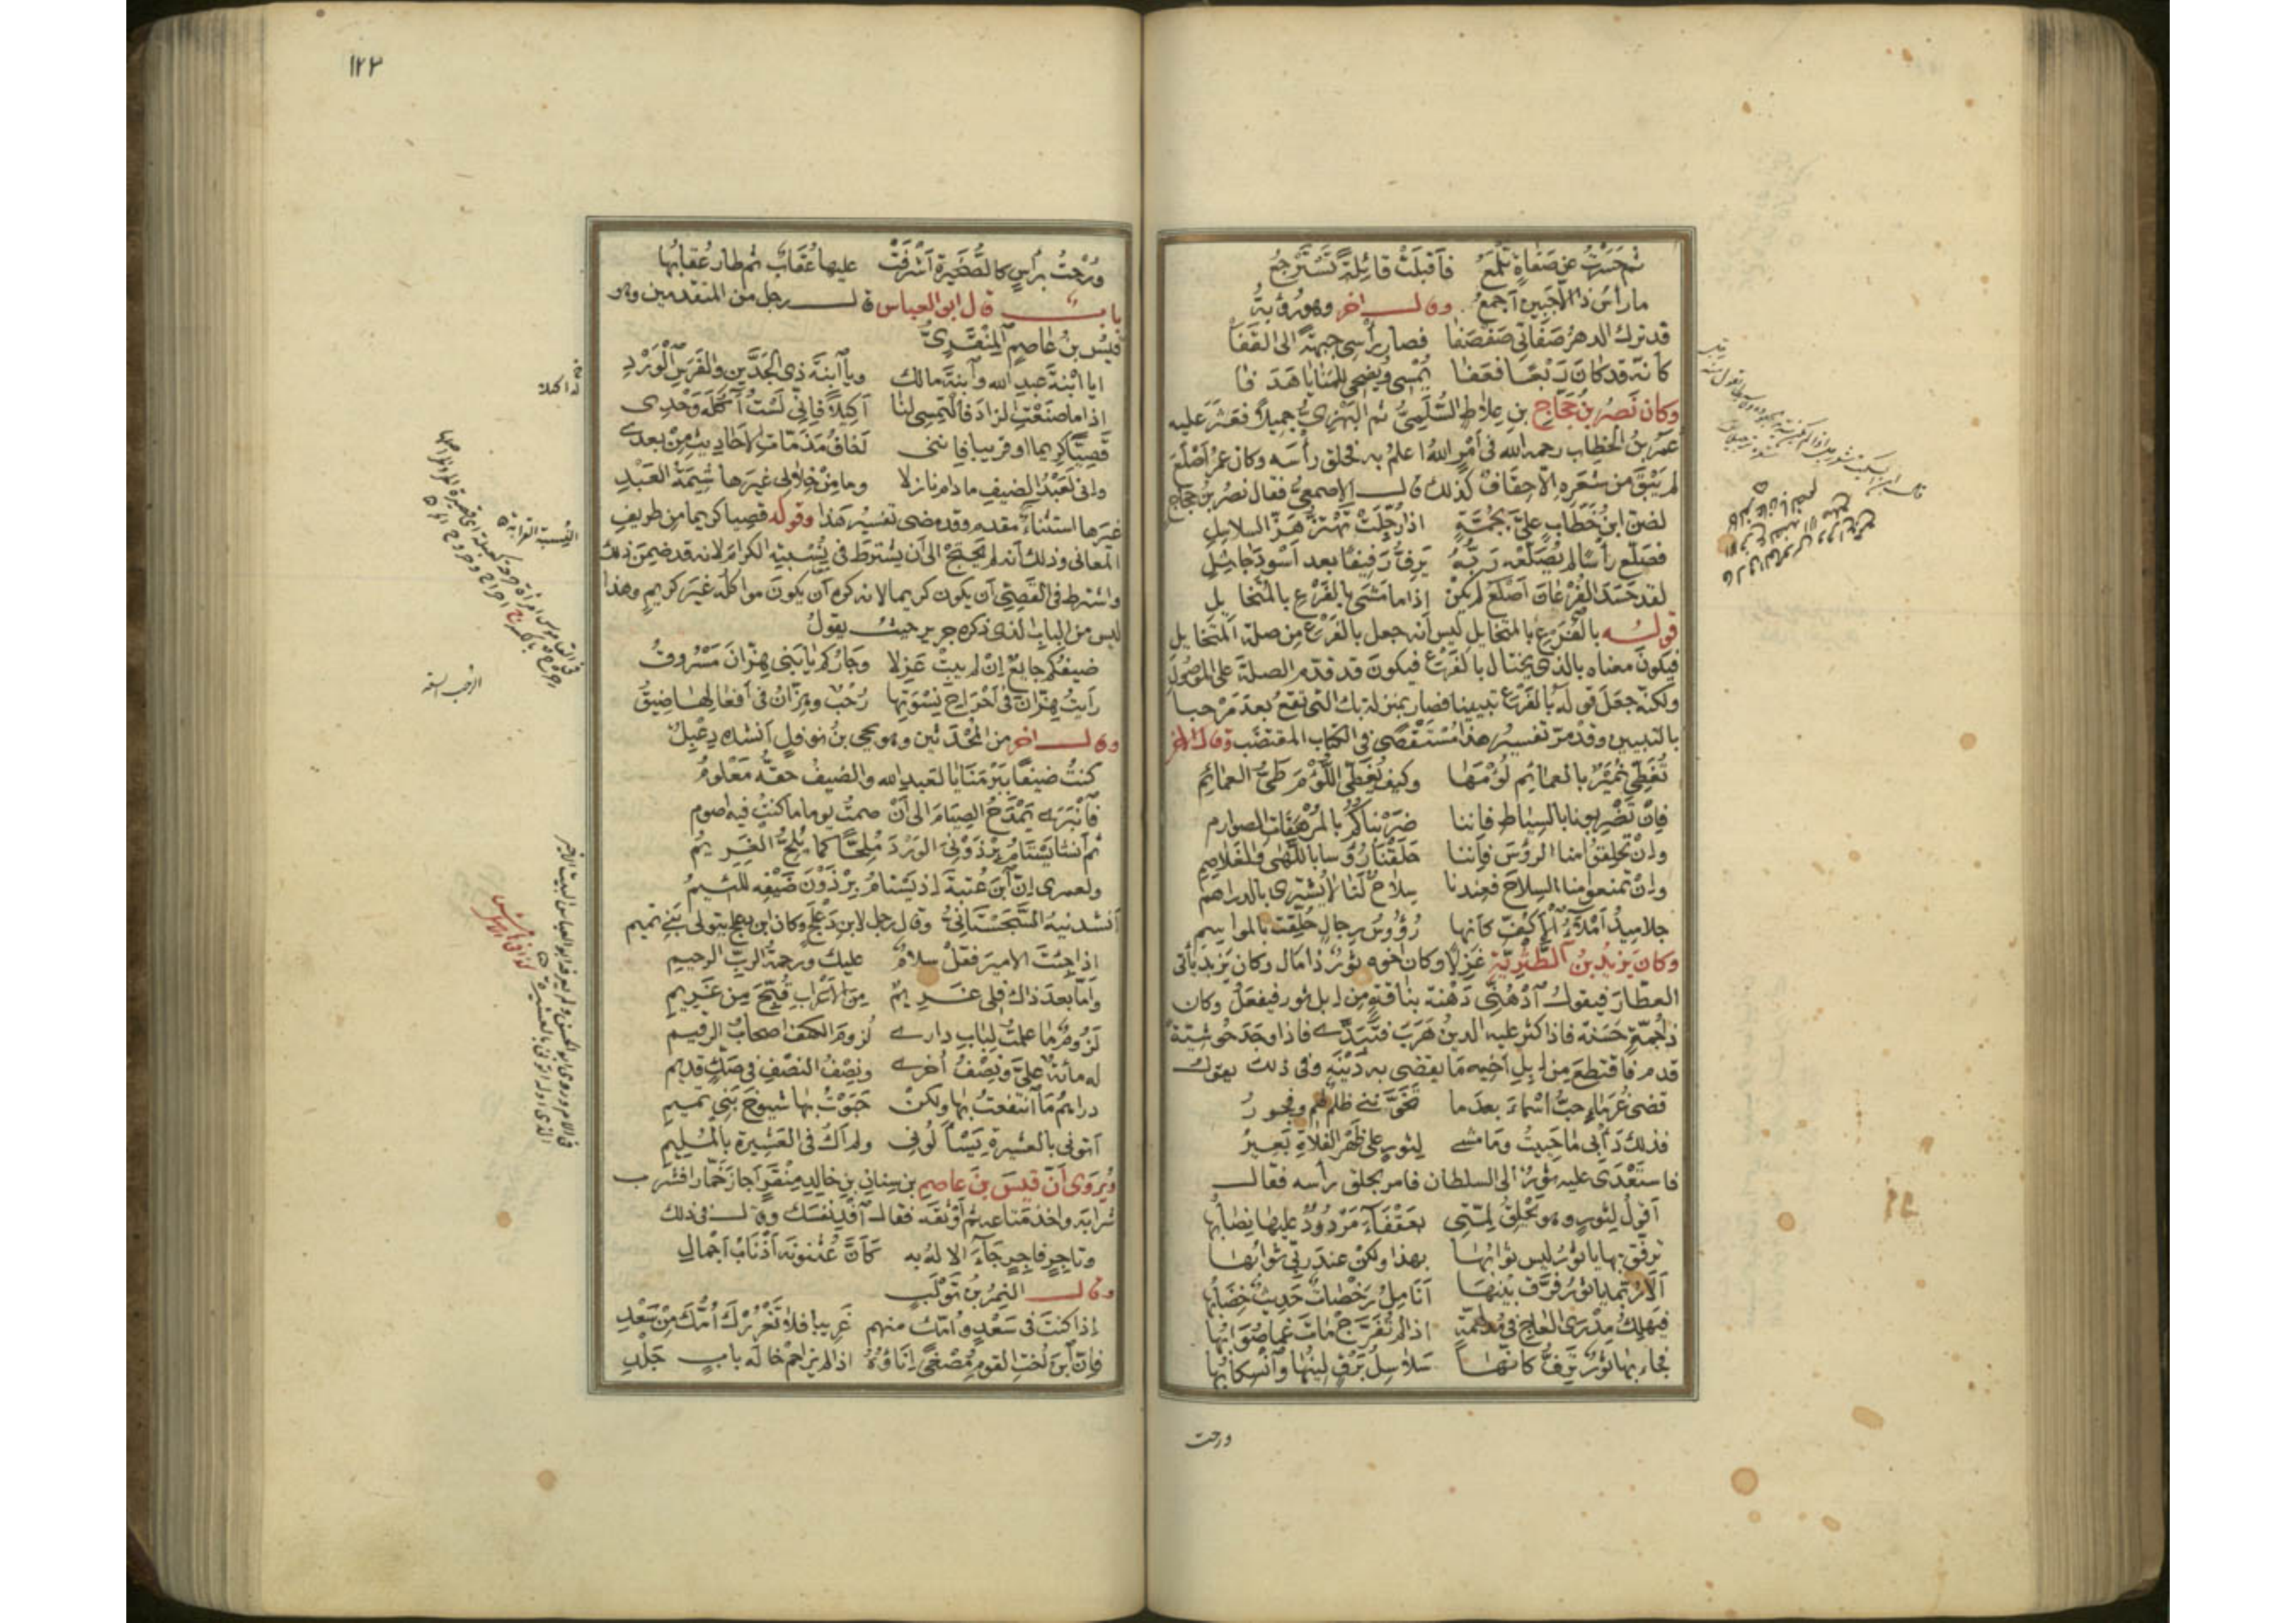 ثم حسرت عن صفاة تلمع فأقبلت قائلة تسترجع
ما رأس ذا إلا جبين أجمع وقال آخر وهو رؤبة
قد ترك الدهر صفاتي صفصفا فصار رأسي جبهة الى القفا
كأنه قد كان ربعا فعفا يمسي ويضحي للمنايا هدفا
وكان نصر بن حجاج بن علاط السلمي ثم البهزي جميلا فعثر عليه
عمر بن الخطاب رحمه الله في أمر الله اعلم به فحلق رأسه وكان عمر أصلع
لم يبق من شعره الا حفاف كذلك قال الاصمعي فقال نصر بن حجاج
لضن ابن خطاب علي بجمة اذا رجلت تهتز هز السلاسل
فصلع رأسا لم يصلعه ربه يرف رفيفا بعد أسود جاثل
لقد حسد الفرعان أصلع لم يكن إذا ما مشى بالفرع بالمتخايل
قوله بالفرع بالمتخايل ليس أنه جعل بالفرع من صلة المتخايل
فيكون معناه بالذي يختال بالفرع فيكون قد قدم الصلة على الموصول
ولكنه جعل قوله بالفرع تبيينا فصار بمنزلة بك التي تقع بعد مرحبا
بالتبيين وقد مر تفسير هذا مستقصى في الكتاب المقتضب وقال آخر
تغطي نمير بالعمائم لؤمها وكيف يغطى اللؤم طي العمائم
فإن تضربونا بالسياط فإننا ضربناكم بالمرهفات الصوارم
وإن تحلقوا منا الرؤس فإننا حلقنا رؤوسا باللهى والغلاصم
وإن تمنعوا منا السلاح فعندنا سلاح لنا لا يشترى بالدراهم
جلاميد أملاء الأكف كأنها رؤوس رجال حلقت بالمواسم
وكان يزيد بن الطثرية غزلا وكان أخوه ثور ذا مال وكان يزيد يأتي
العطار فيقول ادهني دهنة بناقة من ابل ثور فيفعل وكان
ذا جمة حسنة فاذا كثر عليه الدين هرب فتبدى فاذا وجد حوشية
قدم فاقتطع من ابل أخيه ما يقضي به دينه وفي ذلك يقول
قضى غرمائي حب أسماء بعد ما تخوفني ظلم لهم وفجور
فذلك دأبي ما حييت وما مشى لثور على ظهر الفلاة بعير
فاستعدى عليه ثور الى السلطان فامر بحلق رأسه فقال
أقول لثور وهو يحلق لمتي بعقفاء مردود عليها نصابها
ترفق بها يا ثور ليس ثوابها بهذا ولكن عند ربي ثوابها
ألا ربما يا ثور فرق بينها أنامل رخصات حديث خضابها
فيهلك مدرى العاج في مدلهمة اذا لم تفرج مات غما صوابها
فجاء بها ثور ترف كأنها سلاسل برق لينها وانسكابها
ورحت
١٢٣
ورحت برأس كالصخيرة أشرفت عليها عقاب ثم طار عقابها
باب قال ابو العباس قال رجل من المتقدمين وهو
قيس بن عاصم المنقري
ايا ابنة عبد الله وابنة مالك ويا ابنة ذي الجدين والفرس الورد
اذا ما صنعت الزاد فالتمسي لنا أكيلا فإني لست آكله وحدي
قصيا كريما او قريبا فإنني أخاف مذمات الاحاديث من بعدي
واني لعبد الضيف ما دام نازلا وما من خلالي غيرها شيمة العبد
غيرها استثناء مقدم وقد مضى تفسير هذا وقوله قصيا كريما من طريف
المعاني وذلك أنه لم يحتج الى أن يشترط في نسبته الكرام لانه قد ضمن ذلك
واشترط في القصي أن يكون كريما لانه كره أن يكون مواكله غير كريم وهذا
ليس من الباب الذي ذكره جرير حيث يقول
ضيفكم جائع إن لم يبت غزلا وجاركم يا بني هزان مسروق
رأيت هزان في أحراح نسوتها رحب وهزان في أفعالها ضيق
وقال آخر من المحدثين وهو يحيى بن نوفل أنشده دعبل
كنت ضيفا ببرمنايا لعبد الله والضيف حقه معلوم
فانبرى يمدح الصيام الى أن صمت يوما ما كنت فيه اصوم
ثم أنشا يستام برذوني الورد ملحا كما يلح الغريم
ولعمري إن ابن عتبة إذ يستام برذون ضيفه للئيم
أنشدنيه السجستاني وقال رجل لابن دعلج وكان ابن دعلج يتولى بني تميم
اذا جئت الامير فقل سلام عليك ورحمة الرب الرحيم
وأما بعد ذاك فلي غريم من الأعراب قبح من غريم
لزوم ما علمت لباب داري لزوم الكهف اصحاب الرقيم
له مائة علي ونصف أخرى ونصف النصف في صك قديم
دراهم ما انتفعت بها ولكن حبوت بها شيوخ بني تميم
أتوني بالعشيرة يسألوني ولم أك في العشيرة بالمليم
ويروى أن قيس بن عاصم بن سنان بن خالد منقر أجار خمارا فشرب
شرابه واخذ متاعه ثم أوثقه فقال افد نفسك وقال في ذلك
وتاجر فاجر جاء الاله به كأن عثنونه أذناب أجمال
وقال النمر بن تولب
إذا كنت في سعد وامك منهم غريبا فلا تغررك امك من سعد
فإن ابن اخت القوم مصغى إناؤه اذا لم يزاحم خاله باب جلد